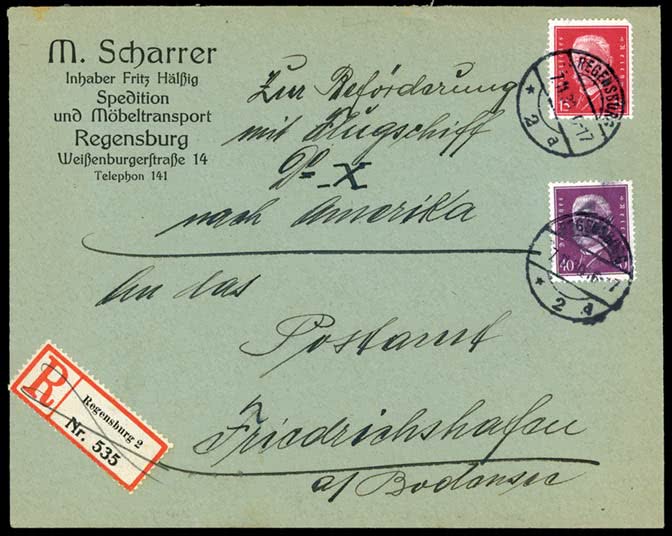 M. Scharrer
Inhaber Fritz Hälßig
Spedition
und Möbeltransport
Regensburg
Weißenburgerstraße 14
Telephon 141
Zur Beförderung
mit Flugschiff
Do-X
nach Amerika
An das
Postamt
Friedrichshafen
a/Bodensee
R
Regensburg 2
Nr. 535
15
REGENSBURG
* 2 a
40
* 2 a